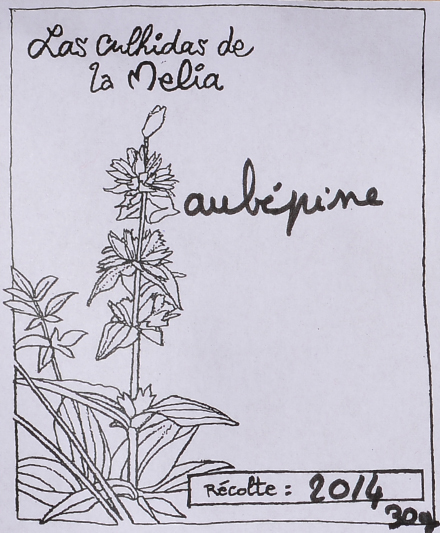 Las culhidas de
la Melia
aubépine
Récolte : 2014
30g